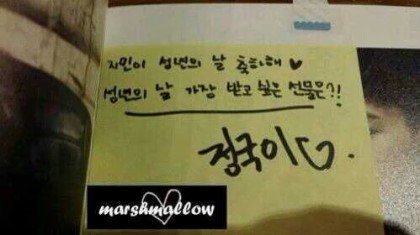 지민이 성년의 날 축하해 ♥
성년의 날 가장 받고 싶은 선물은?!
정국이
marshmallow